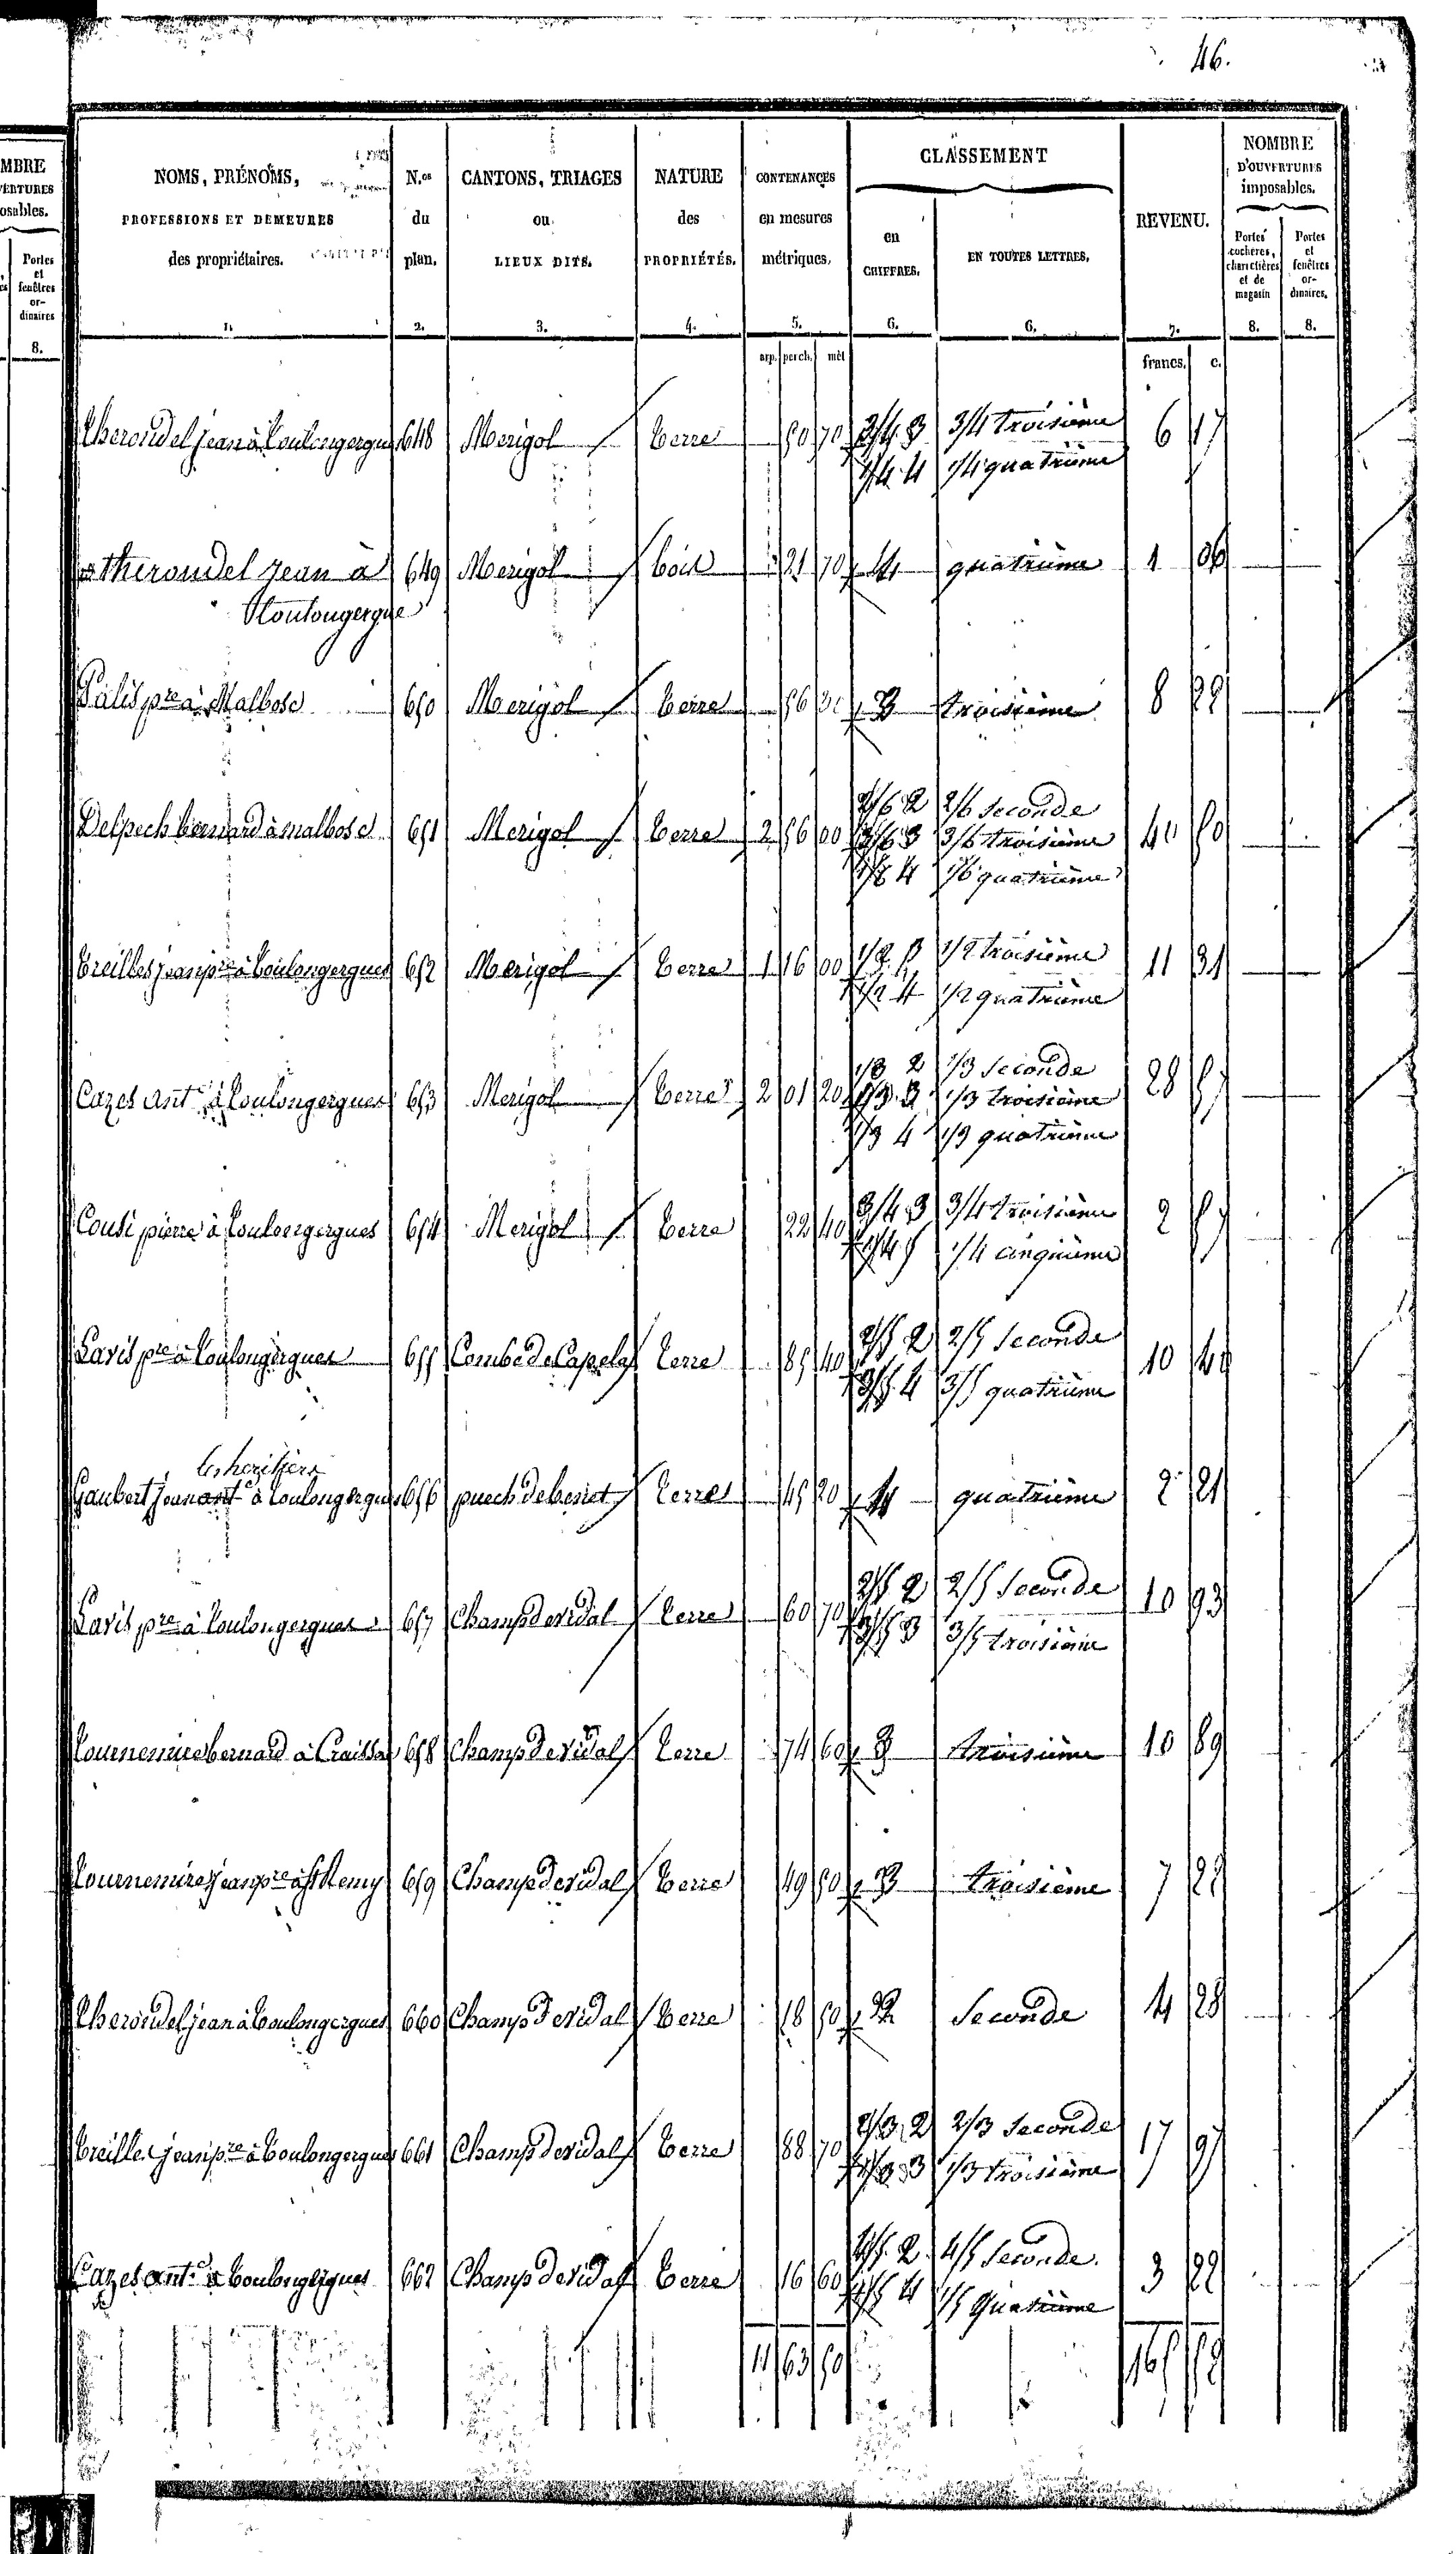 46.
MBRE
ERTURES
osables.
Portes
et
fenêtres
or-
dinaires
8.
NOMS, PRÉNOMS,
PROFESSIONS ET DEMEURES
des propriétaires.
1.
N.os
du
plan.
2.
CANTONS, TRIAGES
ou
LIEUX DITS.
3.
NATURE
des
PROPRIÉTÉS.
4.
CONTENANCES
en mesures
métriques,
5.
CLASSEMENT
en
CHIFFRES.
6.
EN TOUTES LETTRES.
6.
REVENU.
7.
NOMBRE
D'OUVERTURES
imposables.
Portes
cochères,
charretières
et de
magasin
8.
Portes
et
fenêtres
or-
dinaires.
8.
arp. perch. mèt francs. c.
Therondel jean à Toulongergues 648 Merigol Terre 50 70 3/4 3 3/4 troisième 6 17
1/4 4 1/4 quatrième
therondel jean à 649 Merigol bois 21 70 4 quatrième 1 06
Toulongergue
Palis pre à Malbosc 650 Merigol Terre 56 30 3 troisième 8 22
Delpech bernard à malbosc 651 Merigol Terre 2 56 00 2/6 2 2/6 Seconde 40 50
3/6 3 3/6 troisième
1/6 4 1/6 quatrième
Treilles jean pre à Toulongergues 652 Merigol Terre 1 16 00 1/2 3 1/2 troisième 11 31
1/2 4 1/2 quatrième
Cazes ant.e à Toulongergues 653 Merigol Terre 2 01 20 1/3 2 1/3 Seconde 28 57
1/3 3 1/3 troisième
1/3 4 1/3 quatrième
Cousi pierre à Toulongergues 654 Merigol Terre 22 40 3/4 3 3/4 troisième 2 57
1/4 5 1/4 cinquième
Paris pre à Toulongergues 655 Combe de Capela Terre 85 40 2/5 2 2/5 Seconde 10 44
3/5 4 3/5 quatrième
les heritiers
Gaubert jean ant.e à Toulongergues 656 puech de Terres 45 20 4 quatrième 2 21
Paris pre à Toulongergues 657 Champ de vidal Terre 60 70 2/5 2 2/5 Seconde 10 93
3/5 3 3/5 troisième
Tournemire bernard à 658 Champ de vidal Terre 74 60 3 troisième 10 89
Tournemire jean pre à St Remy 659 Champ de vidal Terre 49 50 3 troisième 7 23
Therondel jean à Toulongergues 660 Champ de vidal Terre 18 50 2 Seconde 4 28
Treilles jean pre à Toulongergues 661 Champ de vidal Terre 88 70 2/3 2 2/3 Seconde 17 97
1/3 3 1/3 troisième
Cazes ant.e à Toulongergues 662 Champ de vidal Terre 16 60 4/5 2 4/5 Seconde 3 22
1/5 4 1/5 Quatrième
11 63 50 165 59